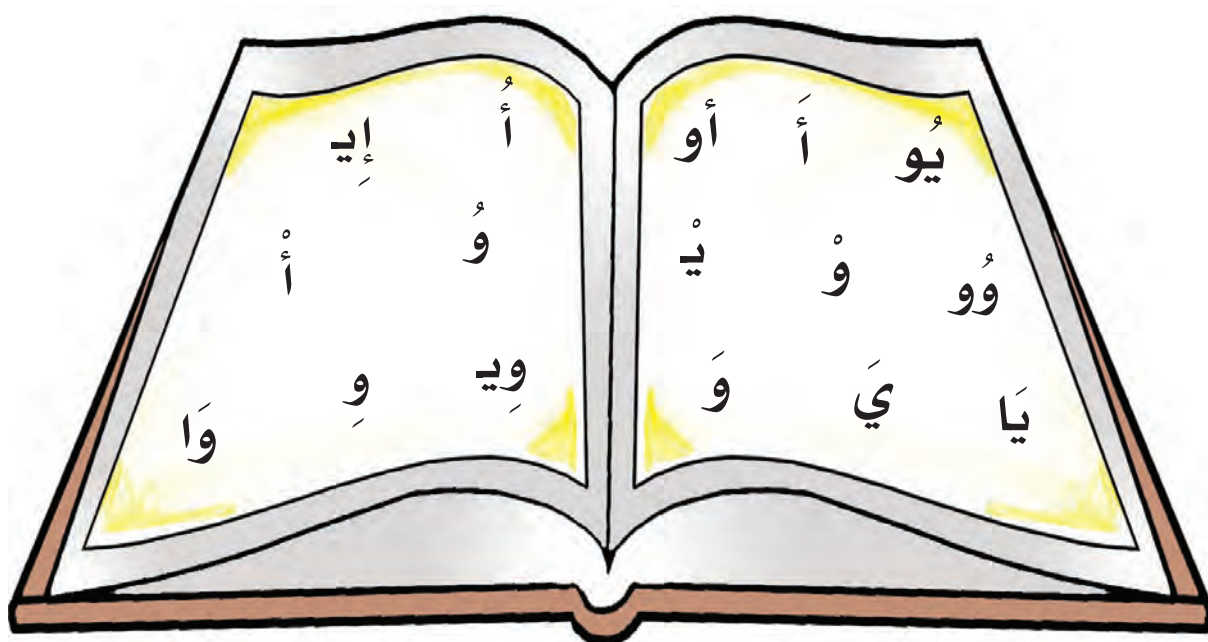 يُو أَ أو
وُو وْ يْـ
يَا يَ وَ
أُ إِيـ
وُ أْ
وِيـ وِ وَا